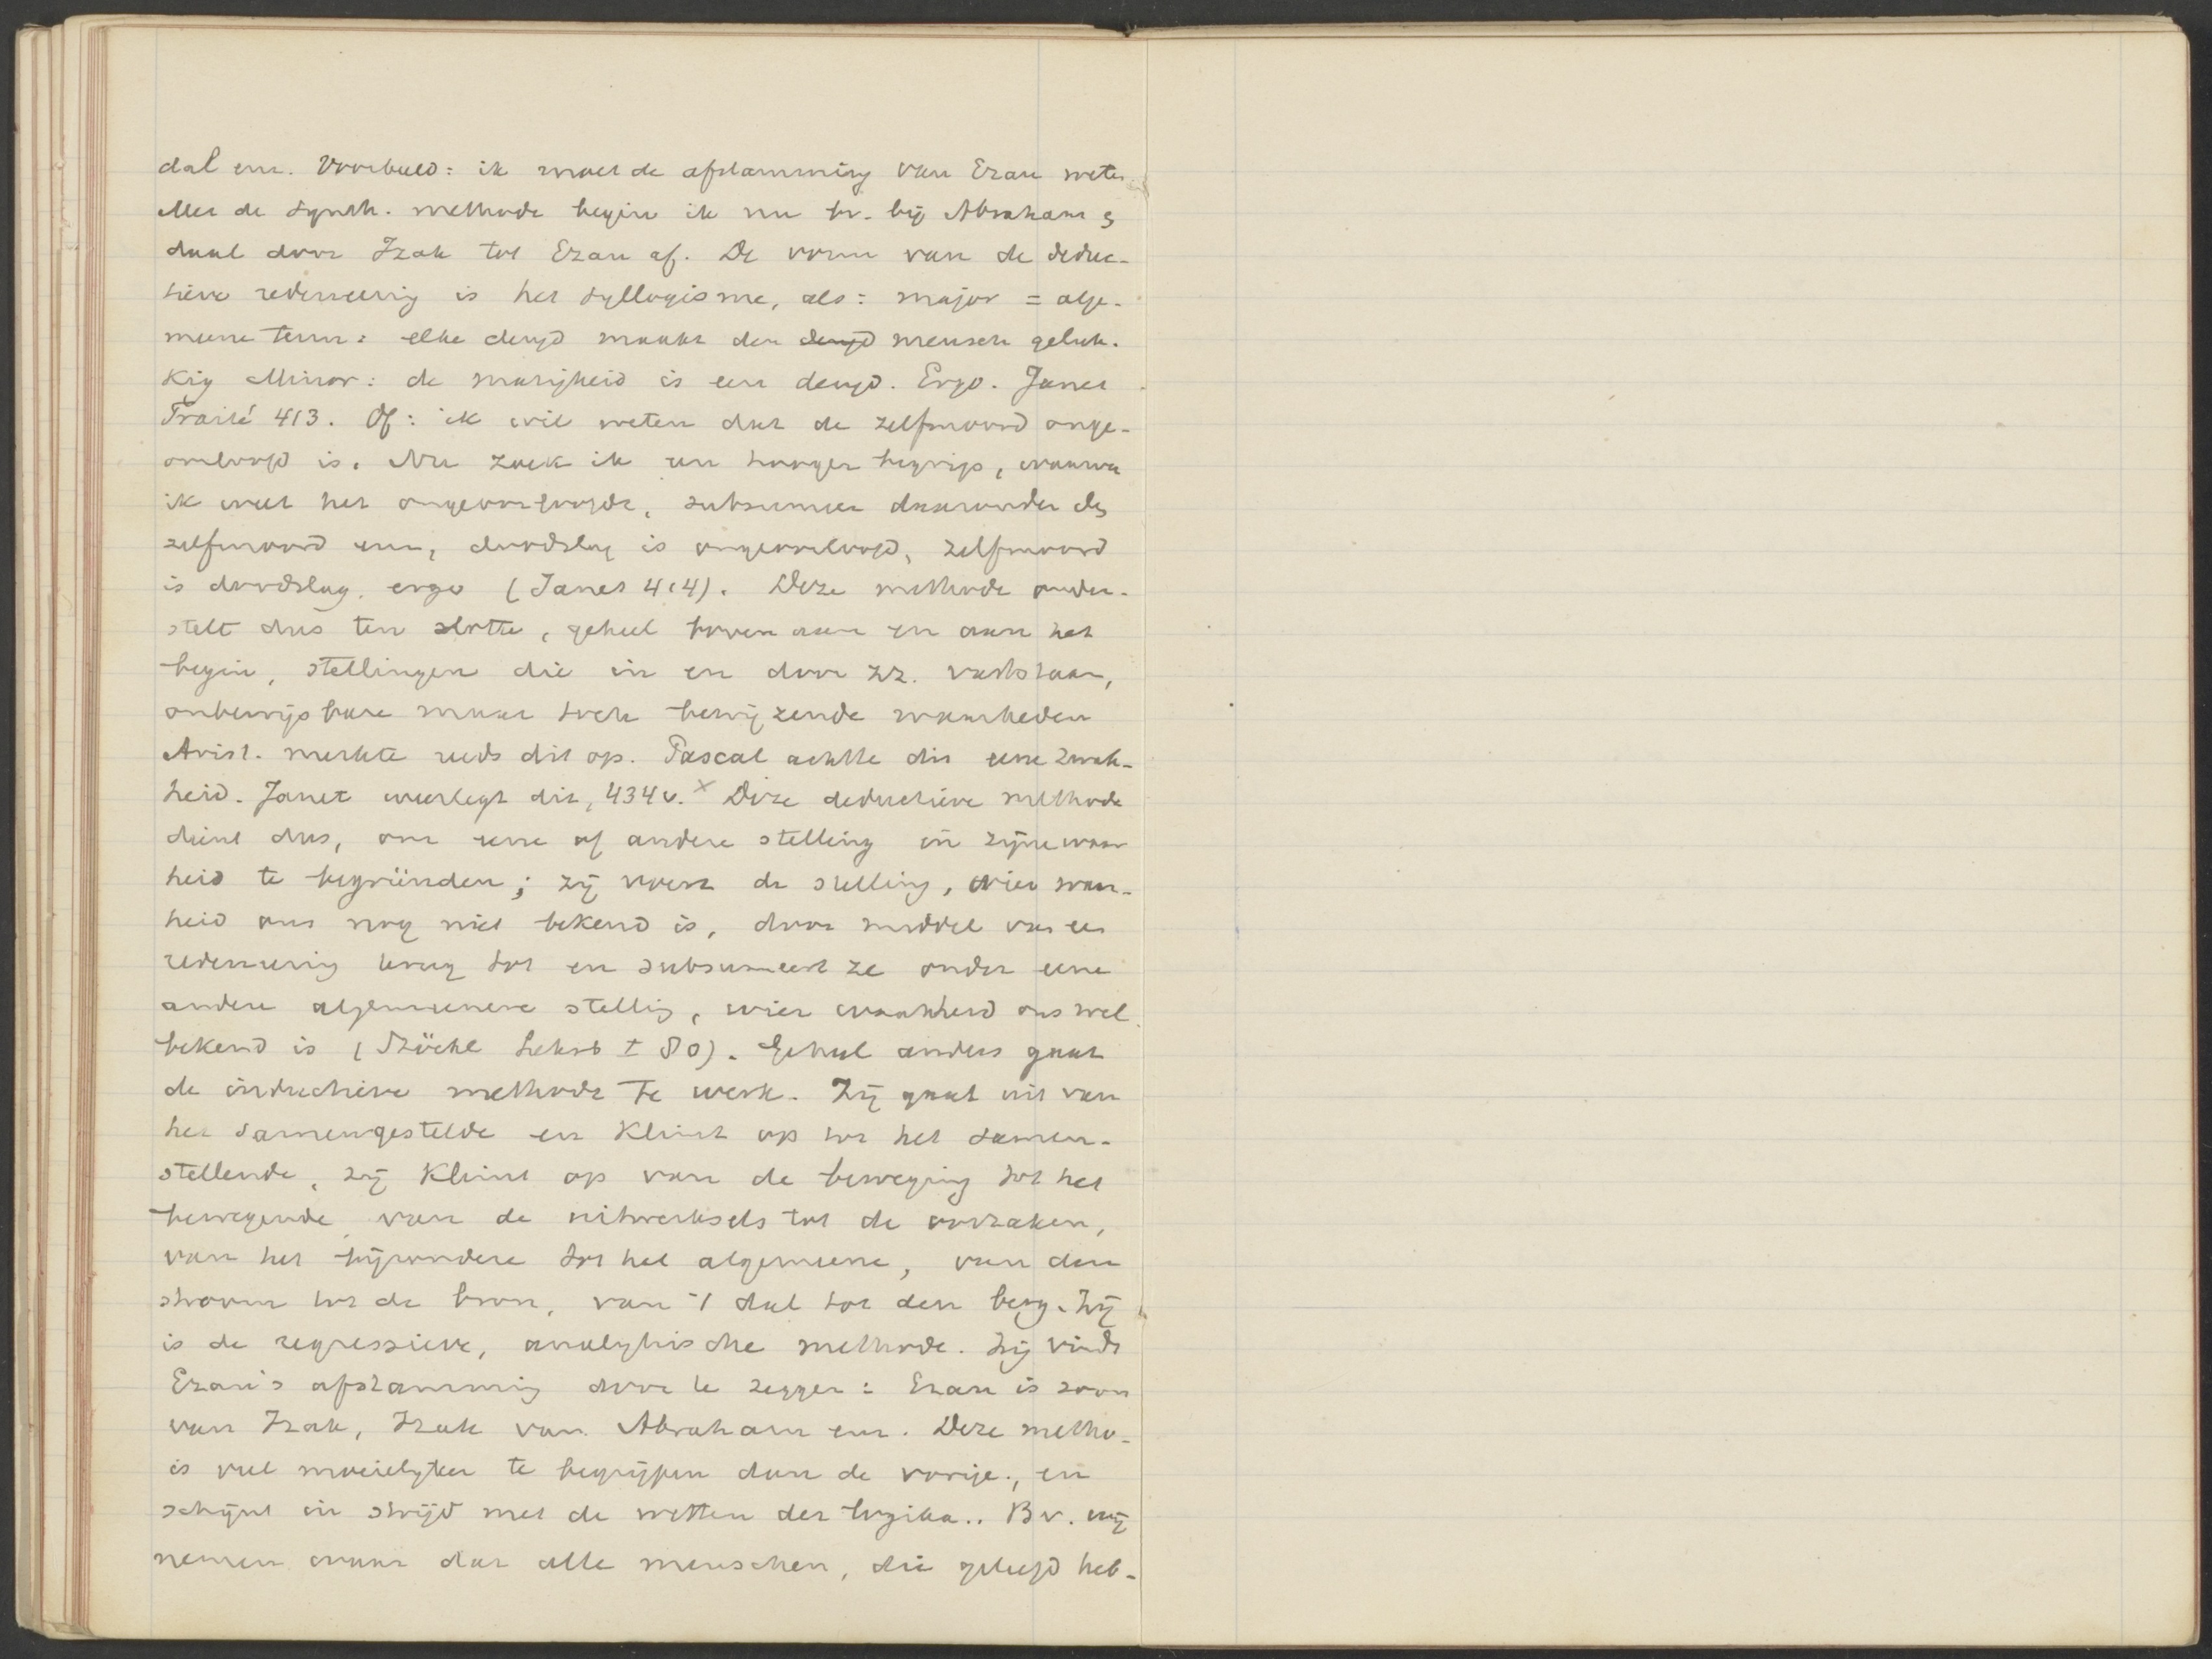 dal enz. Voorbeeld: ik moet de afstamming van Ezau weten
Met de synth. methode begin ik nu bv. bij Abraham &
daal door Izak tot Ezau af. De vorm van de deduc-
tieve redeneering is het syllogisme, als: major = alge-
meene term: elke deugd maakt den deugd mensch geluk-
kig Minor: de matigheid is een deugd. Ergo. Janet
Traité 413. Of: ik wil weten dat de zelfmoord onge-
oorloofd is. Nu zoek ik een hooger begrip, waarvan
ik weet het ongeoorloofde, subsumeer daaronder de
zelfmoord enz, doodslag is ongeoorloofd, zelfmoord
is doodslag. ergo (Janet 414). Deze methode onder-
stelt dus ten slotte, geheel boven aan en aan het
begin, stellingen die in en door zz. vaststaan,
onbewijsbare maar toch bewijzende waarheden
Arist. merkte reeds dit op. Pascal achtte dit eene zwak-
heid. Janet weerlegt dit, 434 v. x Deze deductieve methode
dient dus, om eene of andere stelling in zijne waar
heid te begründen; zij voert de stelling, wier waar-
heid ons nog niet bekend is, door middel van een
redeneering terug tot en subsumeert ze onder eene
andere algemeenere stelling, wier waarheid ons wel
bekend is (Stöckl Lehrb I 80). Geheel anders gaat
de inductieve methode te werk. Zij gaat uit van
het samengestelde en klimt op tot het samen-
stellende, zij klimt op van de beweging tot het
bewegende van de uitwerksels tot de oorzaken,
van het bijzondere tot het algemeene, van den
stroom tot de bron, van 't dal tot den berg. Zij
is de regressieve, analytische methode. Zij vindt
Ezau's afstamming door te zeggen: Ezau is zoon
van Izak, Izak van Abraham enz. Deze metho-
is veel moeielijker te begrijpen dan de vorige., en
schijnt in strijd met de wetten der logika.. Bv. wij
nemen waar dat alle menschen, die geleefd heb-